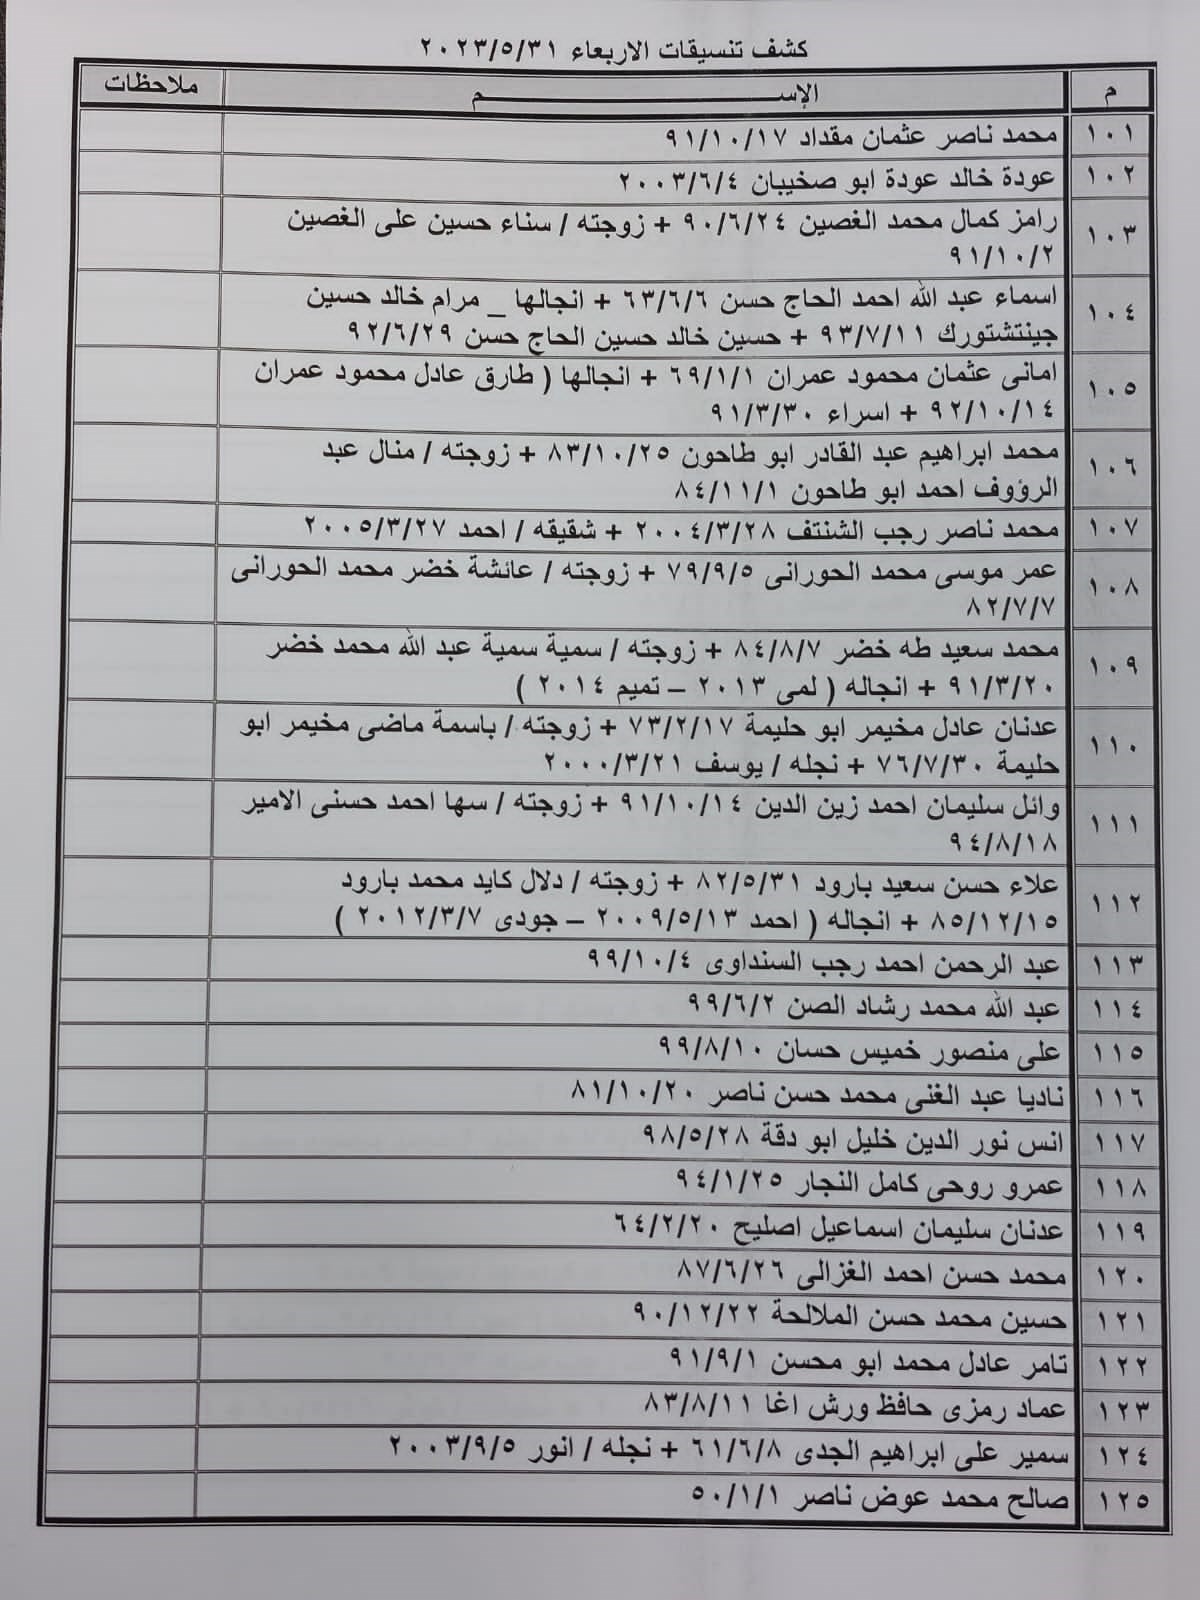 كشف تنسيقات الاربعاء ٢٠٢٣/٥/٣١
م الإســــــــم ملاحظات
١٠١ محمد ناصر عثمان مقداد ٩١/١٠/١٧
١٠٢ عودة خالد عودة ابو صخيبان ٢٠٠٣/٦/٤
١٠٣ رامز كمال محمد الغصين ٩٠/٦/٢٤ + زوجته / سناء حسين على الغصين
٩١/١٠/٢
١٠٤ اسماء عبد الله احمد الحاج حسن ٦٣/٦/٦ + انجالها _ مرام خالد حسين
جينتشتورك ٩٣/٧/١١ + حسين خالد حسين الحاج حسن ٩٢/٦/٢٩
١٠٥ امانى عثمان محمود عمران ٦٩/١/١ + انجالها ( طارق عادل محمود عمران
٩٢/١٠/١٤ + اسراء ٩١/٣/٣٠
١٠٦ محمد ابراهيم عبد القادر ابو طاحون ٨٣/١٠/٢٥ + زوجته / منال عبد
الرؤوف احمد ابو طاحون ٨٤/١١/١
١٠٧ محمد ناصر رجب الشنتف ٢٠٠٤/٣/٢٨ + شقيقه / احمد ٢٠٠٥/٣/٢٧
١٠٨ عمر موسى محمد الحورانى ٧٩/٩/٥ + زوجته / عائشة خضر محمد الحورانى
٨٢/٧/٧
١٠٩ محمد سعيد طه خضر ٨٤/٨/٧ + زوجته / سمية سمية عبد الله محمد خضر
٩١/٣/٢٠ + انجاله ( لمى ٢٠١٣ – تميم ٢٠١٤ )
١١٠ عدنان عادل مخيمر ابو حليمة ٧٣/٢/١٧ + زوجته / باسمة ماضى مخيمر ابو
حليمة ٧٦/٧/٣٠ + نجله / يوسف ٢٠٠٠/٣/٢١
١١١ وائل سليمان احمد زين الدين ٩١/١٠/١٤ + زوجته / سها احمد حسنى الامير
٩٤/٨/١٨
١١٢ علاء حسن سعيد بارود ٨٢/٥/٣١ + زوجته / دلال كايد محمد بارود
٨٥/١٢/١٥ + انجاله ( احمد ٢٠٠٩/٥/١٣ – جودى ٢٠١٢/٣/٧ )
١١٣ عبد الرحمن احمد رجب السنداوى ٩٩/١٠/٤
١١٤ عبد الله محمد رشاد الصن ٩٩/٦/٢
١١٥ على منصور خميس حسان ٩٩/٨/١٠
١١٦ ناديا عبد الغنى محمد حسن ناصر ٨١/١٠/٢٠
١١٧ انس نور الدين خليل ابو دقة ٩٨/٥/٢٨
١١٨ عمرو روحى كامل النجار ٩٤/١/٢٥
١١٩ عدنان سليمان اسماعيل اصليح ٦٤/٢/٢٠
١٢٠ محمد حسن احمد الغزالى ٨٧/٦/٢٦
١٢١ حسين محمد حسن الملالحة ٩٠/١٢/٢٢
١٢٢ تامر عادل محمد ابو محسن ٩١/٩/١
١٢٣ عماد رمزى حافظ ورش اغا ٨٣/٨/١١
١٢٤ سمير على ابراهيم الجدى ٦١/٦/٨ + نجله / انور ٢٠٠٣/٩/٥
١٢٥ صالح محمد عوض ناصر ٥٠/١/١